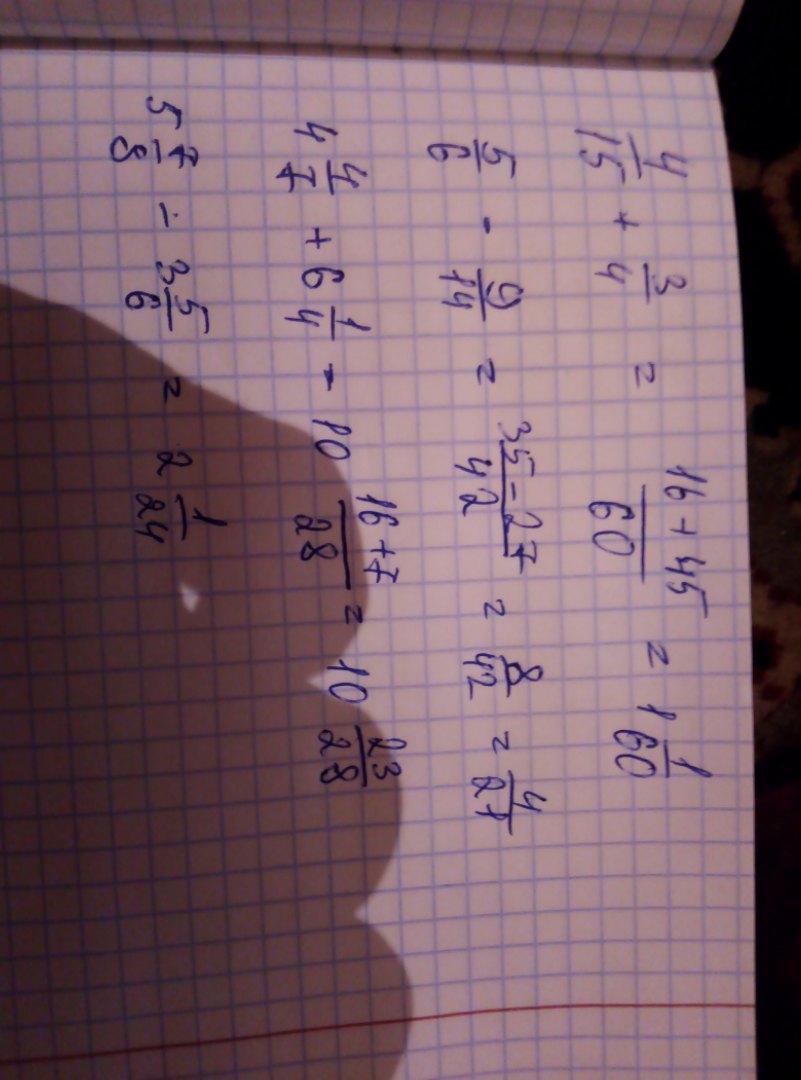 4/15 + 3/4 = 16+45/60 = 1 1/60
5/6 - 9/14 = 35-27/42 = 8/42 = 4/21
4 4/7 + 6 1/4 - 10 16+7/28 = 10 23/28
5 7/8 - 3 5/6 = 2 1/24